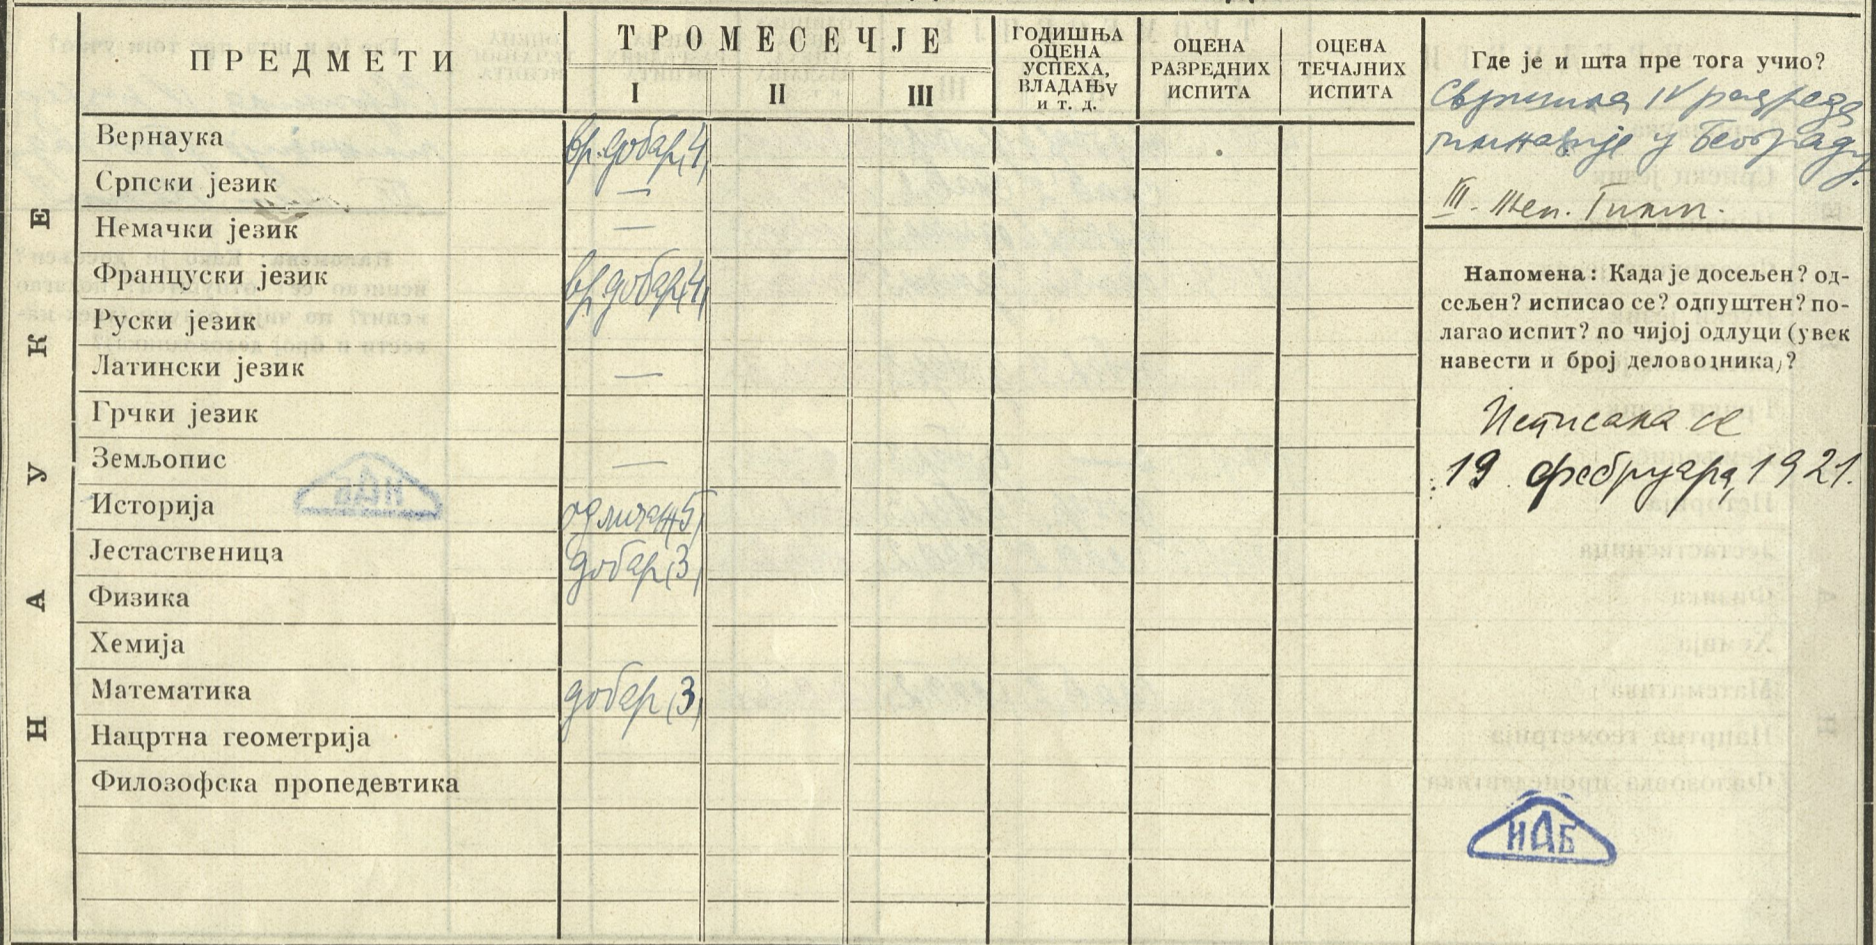 ПРЕДМЕТИ
ТРОМЕСЕЧЈЕ
I II III
ГОДИШЊА ОЦЕНА УСПЕХА, ВЛАДАЊУ И Т. Д.
ОЦЕНА РАЗРЕДНИХ ИСПИТА
ОЦЕНА ТЕЧАЈНИХ ИСПИТА
НАУКЕ
Вернаука вр. добар, 4,
Српски језик —
Немачки језик —
Француски језик вр. добар, 4,
Руски језик
Латински језик —
Грчки језик
Земљопис —
Историја одличан 5,
Јестаственица добар, 3,
Физика
Хемија
Математика добар, 3,
Нацртна геометрија
Филозофска пропедевтика
Где је и шта пре тога учио?
Свршила IV разреда
гимназије у Београду.
III. Жен. Гимн.
Напомена: Када је досељен? од-
сељен? исписао се? одпуштен? по-
лагао испит? по чијој одлуци (увек
навести и број деловодника,?
Исписала се
19 фебруара, 1921.
ИАБ
ИАБ